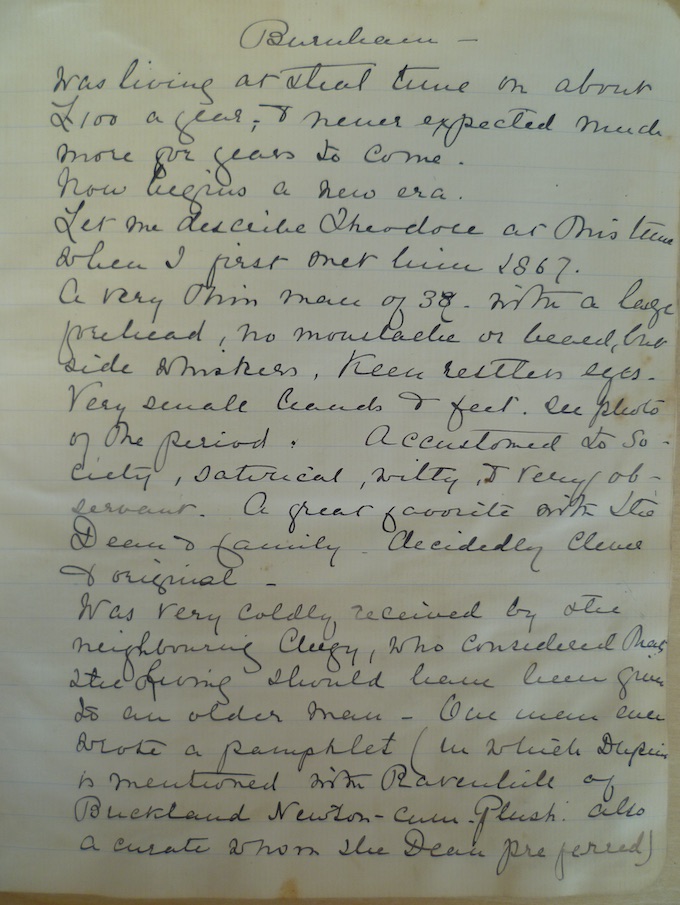 Burnham -
was living at that time on about
£100 a year, & never expected much
more for years to come.
Now begins a new era.
Let me describe Theodore at this time
when I first met him 1867.
A very thin man of 38. with a large
forehead, no moustache or beard, but
side whiskers, Keen restless eyes.
Very small hands & feet. see photo
of the period. Accustomed to So-
ciety, satirical, witty, & very ob-
servant. A great favorite with the
Dean & family - decidedly clever
& original -
Was very coldly received by the
neighbouring Clergy, who considered that
the Living should have been given
to an older man - One man even
wrote a pamphlet (in which
is mentioned with Ravenhill of
Buckland Newton-cum-Plush. also
a curate whom the Dean preferred)